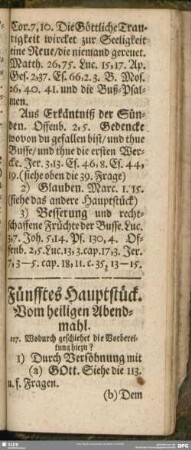 Cor. 7, 10. Die Göttliche Trau-
rigkeit wircket zur Seeligkeit
eine Reue / die niemand gereuet.
Matth. 26, 75. Luc. 15, 17. Ap.
Ges. 2, 37. Es. 66, 2. 3. B. Mos.
26, 40. 41. und die Buß-Psal-
men.
Aus Erkäntniß der Sün-
den. Offenb. 2, 5. Gedencke
wovon du gefallen bist / und thue
Busse / und thue die ersten Wer-
cke. Jer. 3, 13. Es. 46, 8. Es. 44,
19. (siehe oben die 39. Frage)
2) Glauben. Marc. 1. 15.
(siehe das andere Hauptstück)
3) Besserung und recht-
schaffene Früchte der Busse. Luc.
3, 7. Joh. 5, 14. Ps. 130, 4. Of-
fenb. 2, 5. Luc. 13, 3. cap. 17, 3. Jer.
7, 3–5. cap. 18, 11. c. 35, 13–15.
Fünfftes Hauptstück.
Vom heiligen Abend-
mahl.
117. Wodurch geschiehet die Vorberei-
tung hiezu?
1) Durch Versöhnung mit
(a) GOtt. Siehe die 113.
u. f. Fragen.
(b) Dem